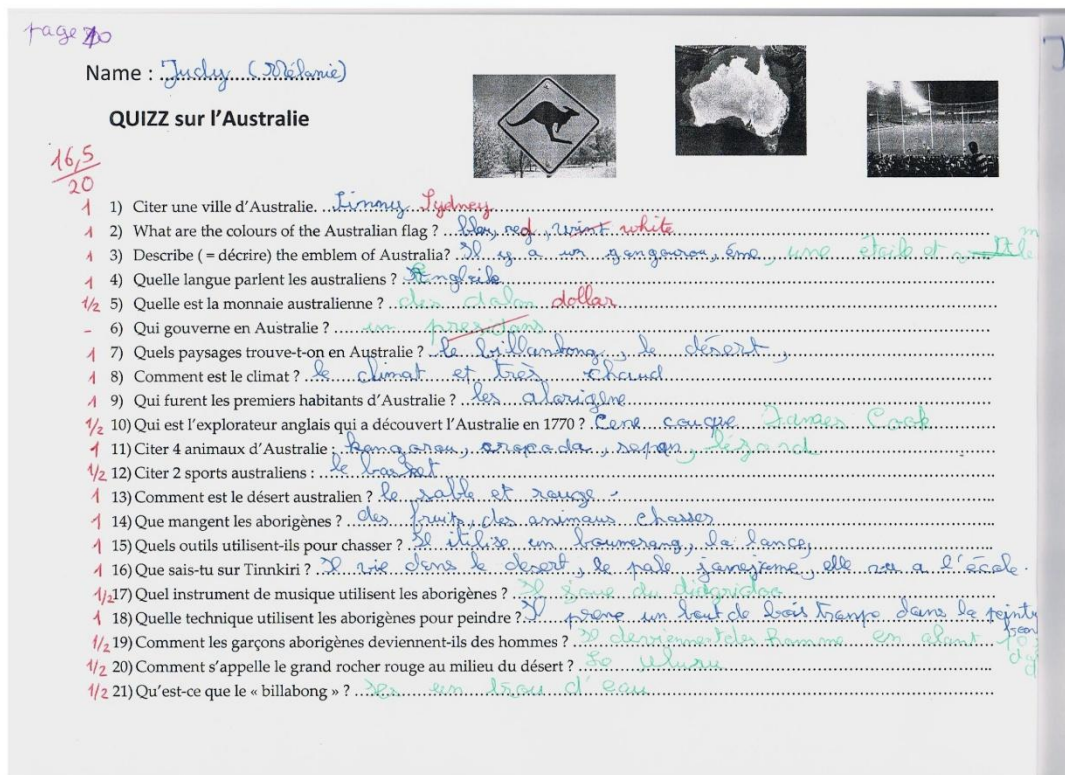 page 10
Name : Judy (Mélanie)
QUIZZ sur l'Australie
16,5
20
1 1) Citer une ville d'Australie. Sydney
1 2) What are the colours of the Australian flag ? blou, red, wint white
1 3) Describe ( = décrire) the emblem of Australia? Il y a un gangourou, éme, une étoile et
1 4) Quelle langue parlent les australiens ?
1/2 5) Quelle est la monnaie australienne ? des dolan dollar
- 6) Qui gouverne en Australie ? un presidans
1 7) Quels paysages trouve-t-on en Australie ? le billanbong, le désert,
1 8) Comment est le climat ? le climat et très chaud
1 9) Qui furent les premiers habitants d'Australie ? les alorigène
1/2 10) Qui est l'explorateur anglais qui a découvert l'Australie en 1770 ? Cene couque James Cook
1 11) Citer 4 animaux d'Australie : kangorou, crocoda, serpan, lézard
1/2 12) Citer 2 sports australiens : le basket
1 13) Comment est le désert australien ? le sable et rouge.
1 14) Que mangent les aborigènes ? des fruits, des animaus chasses
1 15) Quels outils utilisent-ils pour chasser ? Il itilise un boumerang, la lance,
1 16) Que sais-tu sur Tinnkiri ? Il vie dans le desert, le pale janejeme, elle va a l'école.
1/2 17) Quel instrument de musique utilisent les aborigènes ? Il joue du didgiridoo
1 18) Quelle technique utilisent les aborigènes pour peindre ? Il prene un bout de bois tranpo dans la peintu
1/2 19) Comment les garçons aborigènes deviennent-ils des hommes ? Il deviennent des homme en alant
1/2 20) Comment s'appelle le grand rocher rouge au milieu du désert ? Le uluru
1/2 21) Qu'est-ce que le « billabong » ? Ses un trou d'eau